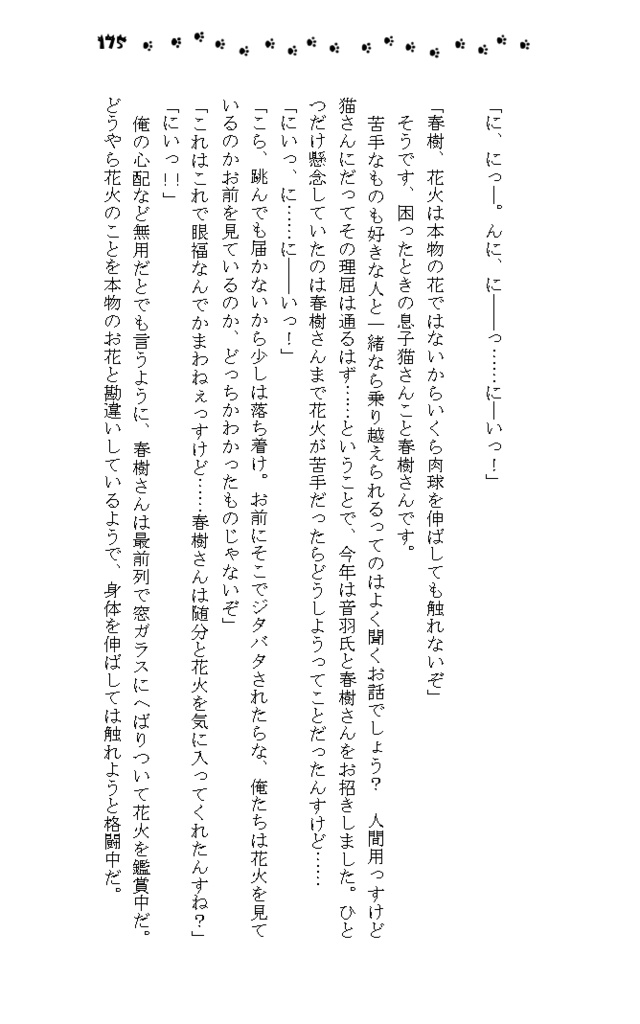 175
「に、にっ―。んに、に――っ……に―いっ！」
「春樹、花火は本物の花ではないからいくら肉球を伸ばしても触れないぞ」
そうです、困ったときの息子猫さんこと春樹さんです。
苦手なものも好きな人と一緒なら乗り越えられるってのはよく聞くお話でしょう？　人間用っすけど
猫さんにだってその理屈は通るはず……ということで、今年は音羽氏と春樹さんをお招きしました。ひと
つだけ懸念していたのは春樹さんまで花火が苦手だったらどうしようってことだったんすけど……
「にいっ、に……に――いっ！」
「こら、跳んでも届かないから少しは落ち着け。お前にそこでジタバタされたらな、俺たちは花火を見て
いるのかお前を見ているのか、どっちかわかったものじゃないぞ」
「これはこれで眼福なんでかまわねぇっすけど……春樹さんは随分と花火を気に入ってくれたんすね？」
「にいっ！！」
俺の心配など無用だとでも言うように、春樹さんは最前列で窓ガラスにへばりついて花火を鑑賞中だ。
どうやら花火のことを本物のお花と勘違いしているようで、身体を伸ばしては触れようと格闘中だ。